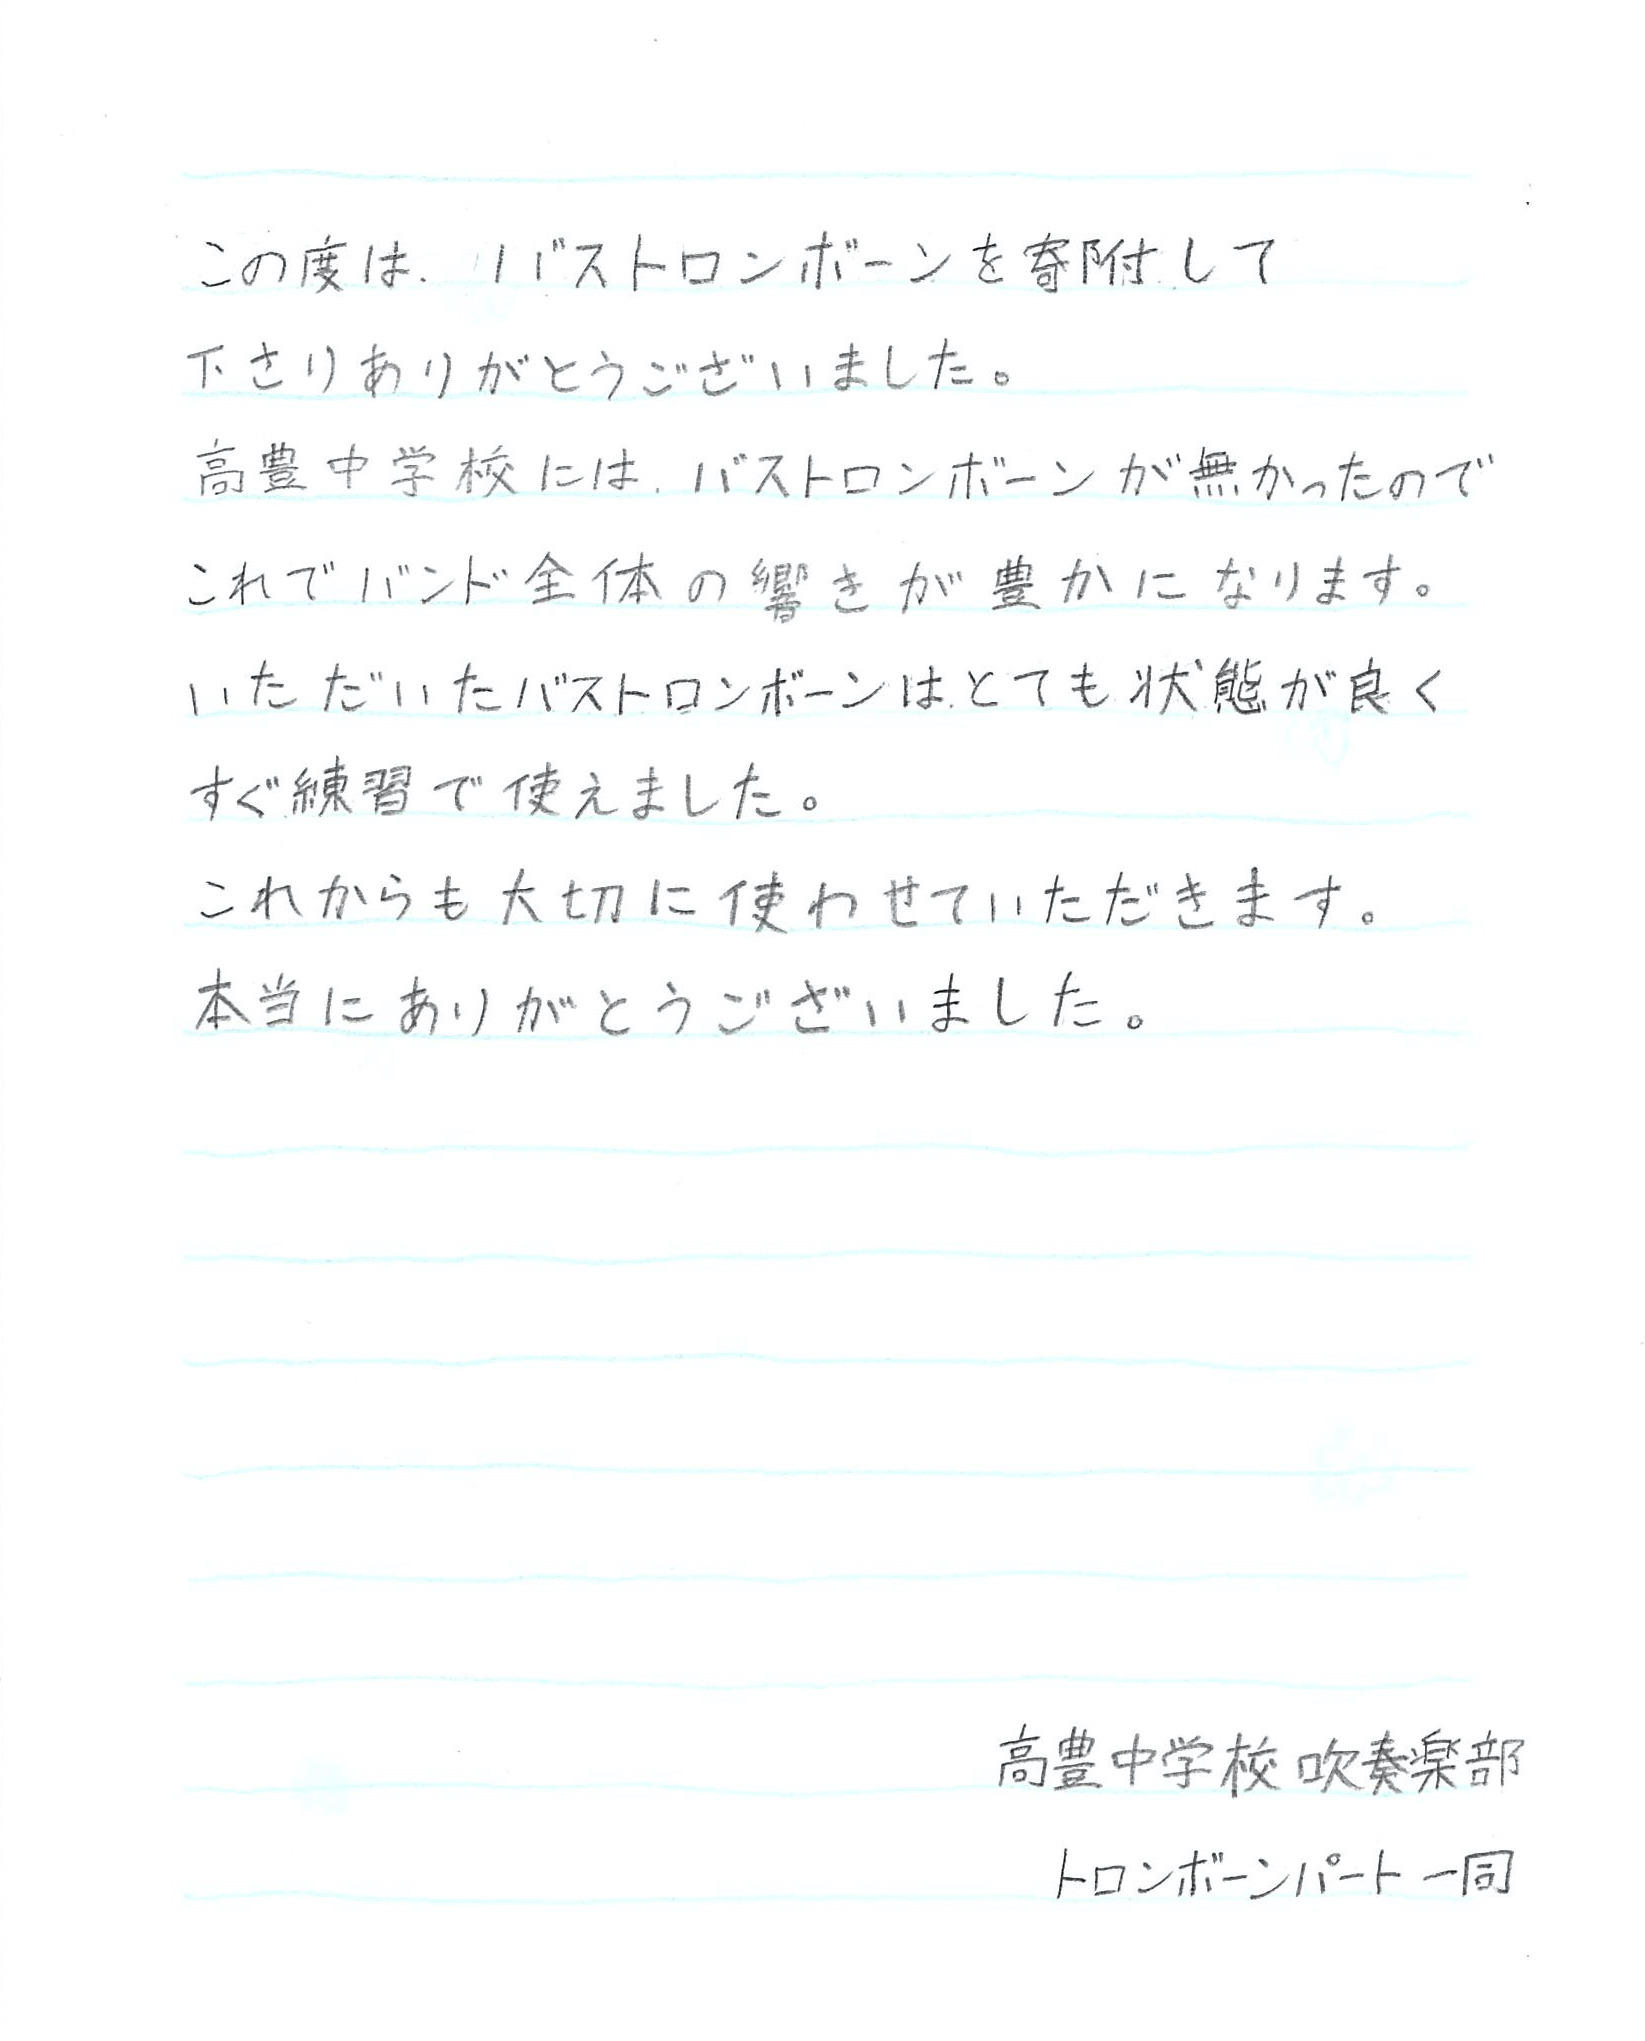 この度は、バストロンボーンを寄附して
下さりありがとうございました。
高豊中学校には、バストロンボーンが無かったので
これでバンド全体の響きが豊かになります。
いただいたバストロンボーンはとても状態が良く
すぐ練習で使えました。
これからも大切に使わせていただきます。
本当にありがとうございました。
高豊中学校吹奏楽部
トロンボーンパート一同